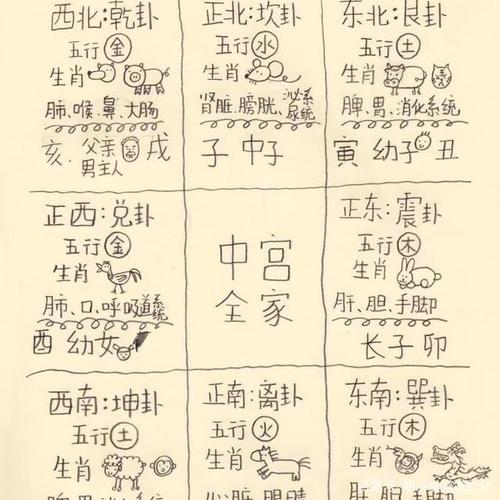 西北:乾卦
五行金
生肖
肺、喉、鼻、大肠
亥、父亲 男主人 戌
正北:坎卦
五行水
生肖
肾脏、膀胱、泌尿系统
子 中子
东北:艮卦
五行土
生肖
脾、胃、消化系统
寅 幼子 丑
正西:兑卦
五行金
生肖
肺、口、呼吸道系统
酉 幼女
中宫
全家
正东:震卦
五行木
生肖
肝、胆、手脚
长子 卯
西南:坤卦
五行土
生肖
正南:离卦
五行火
生肖
心脏、眼睛
东南:巽卦
五行木
生肖
肝、胆、手脚